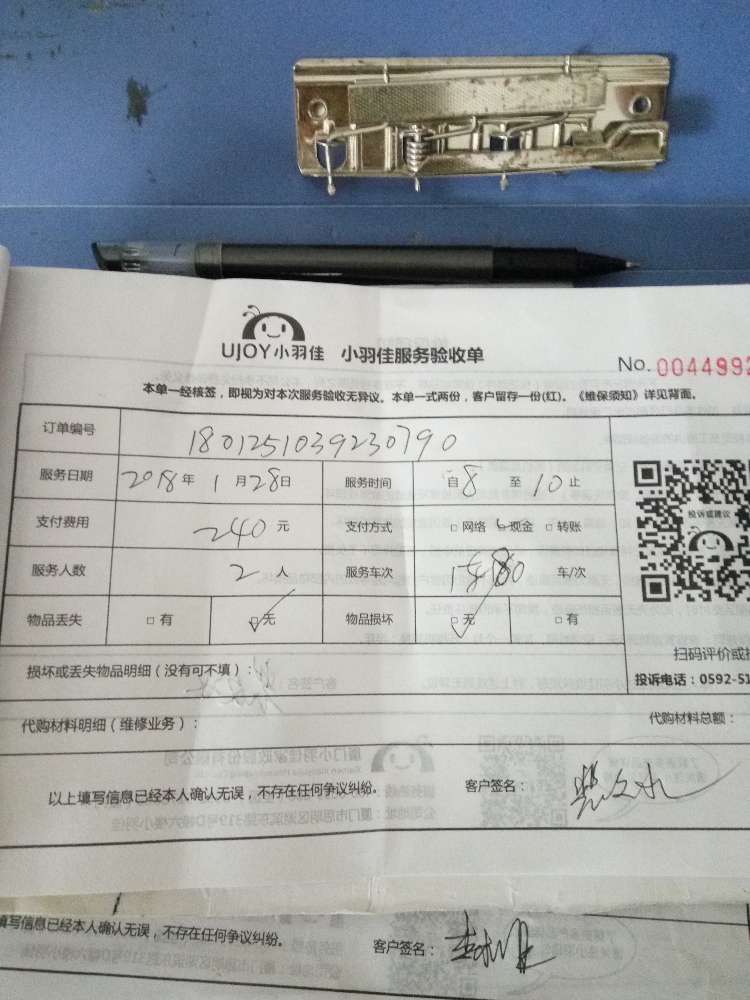 UJOY小羽佳 小羽佳服务验收单
No. 0044992
本单一经核签，即视为对本次服务验收无异议。本单一式两份，客户留存一份(红)。《维保须知》详见背面。
订单编号 1801251039230790
服务日期 2018年 1月28日 服务时间 自8至10止
支付费用 240元 支付方式 □网络 □现金 □转账
服务人数 2人 服务车次 车/次
投诉或建议
物品丢失 □有 □无 物品损坏 □无 □有
扫码评价或投
损坏或丢失物品明细（没有可不填）：
投诉电话：0592-51
代购材料明细（维修业务）：
代购材料总额：
以上填写信息已经本人确认无误，不存在任何争议纠纷。 客户签名：
填写信息已经本人确认无误，不存在任何争议纠纷。 客户签名：